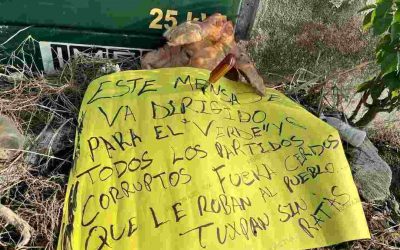 25
ESTE MENSAJE
VA DIRIGIDO
PARA EL "VERDE" Y A
TODOS LOS PARTIDOS
CORRUPTOS FUERA CERDOS
QUE LE ROBAN AL PUEBLO
TUXPAN SIN
RATAS